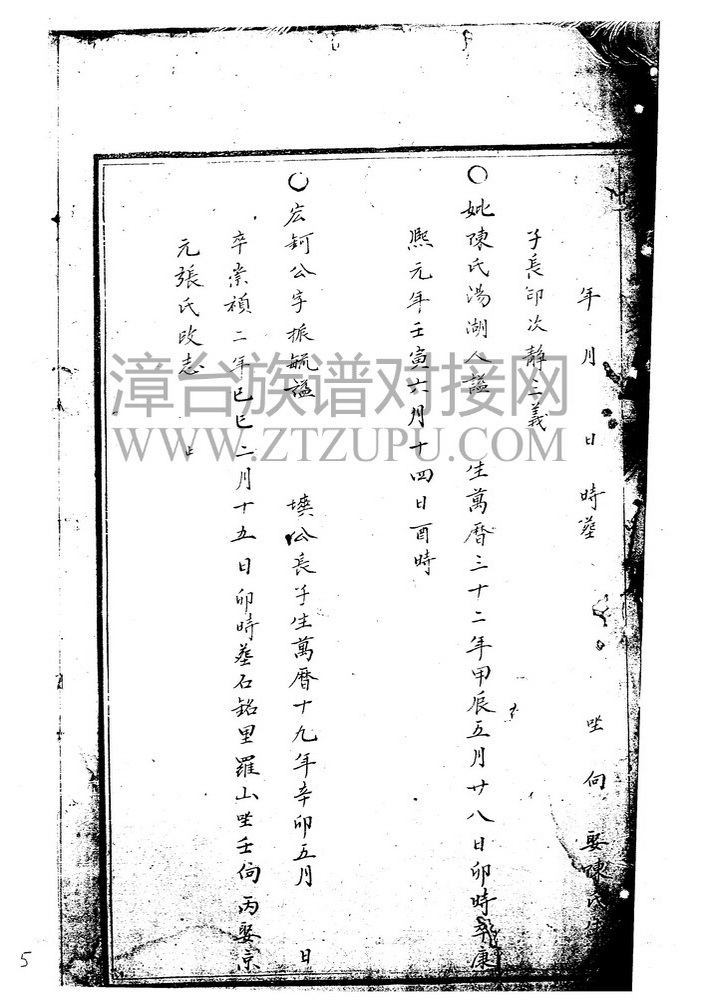 年月 日時塟 坐向 娶陳氏
子長印次靜三義
〇妣陳氏湯湖人謚 生萬曆三十二年甲辰五月廿八日卯時卒康
熙元年壬寅六月十四日酉時
〇宏軻公字振毓謚 墺公長子生萬曆十九年辛卯五月 日
卒崇禎二年己巳二月十五日卯時塟石銘里羅山坐壬向丙娶京
元張氏改志 止
漳台族谱对接网
WWW.ZTZUPU.COM
5